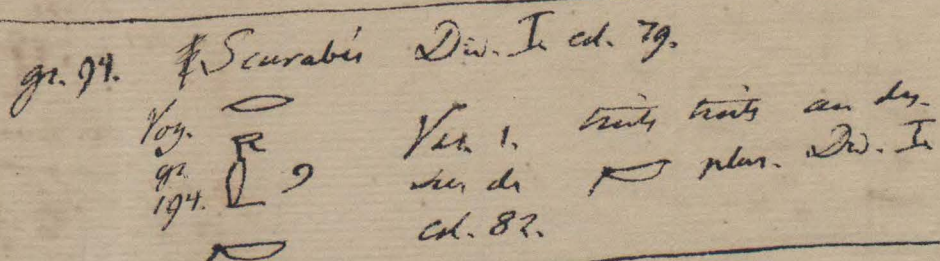 gr. 94. Scarabées Div. I. col. 79.
Voy. gr. 194.
Var. 1. trois traits au des-
sus de plur. Div. I
col. 82.